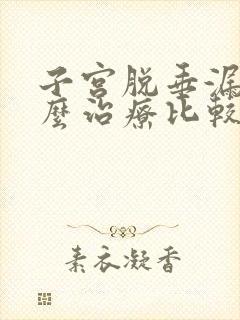 子宫脱垂漏
麼治療比較
素衣凝香